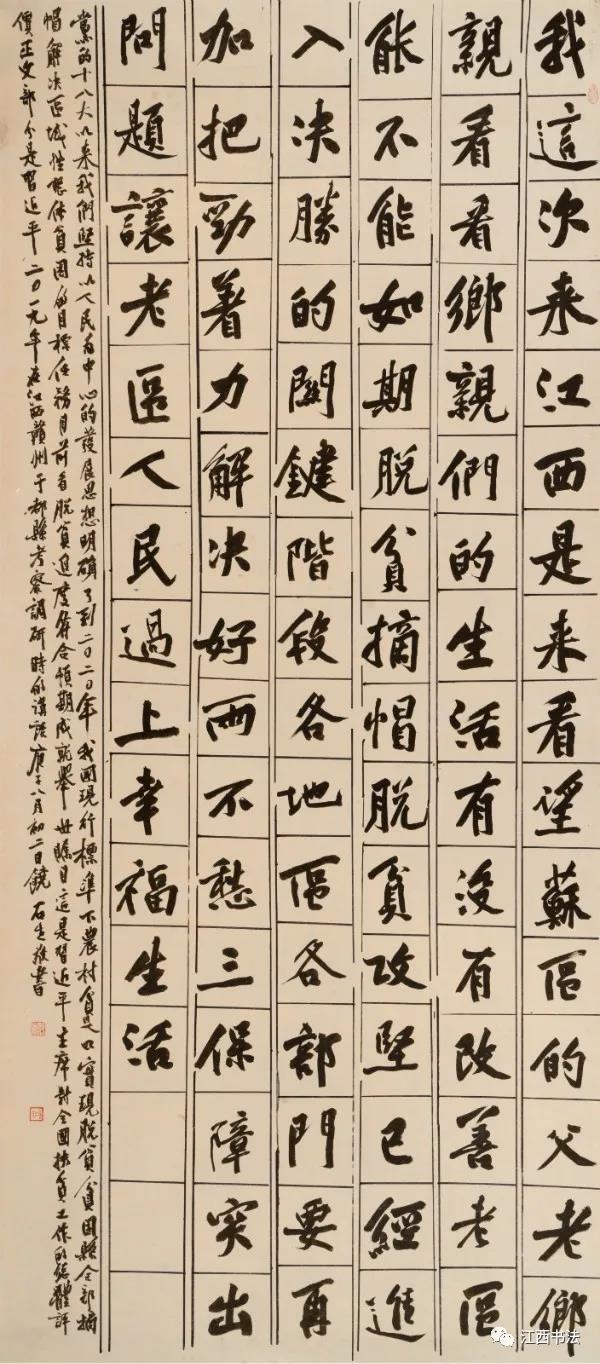 我這次来江西是来看望蘇區的父老鄉
親看看鄉親們的生活有没有改善老區
能不能如期脱貧摘帽脱貧攻堅已經進
入决勝的關鍵階段各地區各部門要再
加把勁着力解决好两不愁三保障突出
問題讓老區人民過上幸福生活
黨的十八大以来我們堅持以人民為中心的發展思想明確了到二〇二〇年我國現行標準下農村貧困人口實現脱貧貧困縣全部摘
帽解决區域性整体貧困的目標任務目前看脱貧進度符合預期成就舉世矚目這是習近平主席對全國扶貧工作的總體評
價正文部分是習近平二〇一九年在江西贛州于都縣考察調研時的講話庚子八月初二日饒石生敬書
江西书法